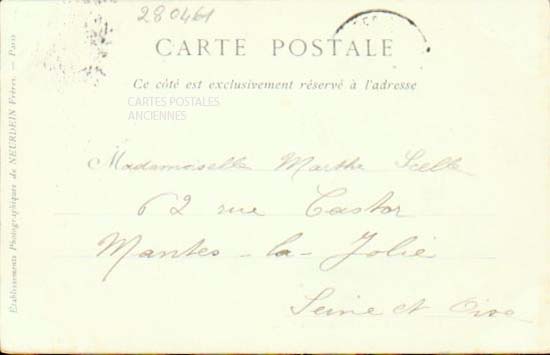 280461
CARTE POSTALE
Ce côté est exclusivement réservé à l'adresse
CARTES POSTALES
ANCIENNES
Mademoiselle Marthe Scelle
62 rue Castor
Mantes-la-Jolie
Seine et Oise
Etablissements Photographiques de NEURDEIN Frères. — Paris